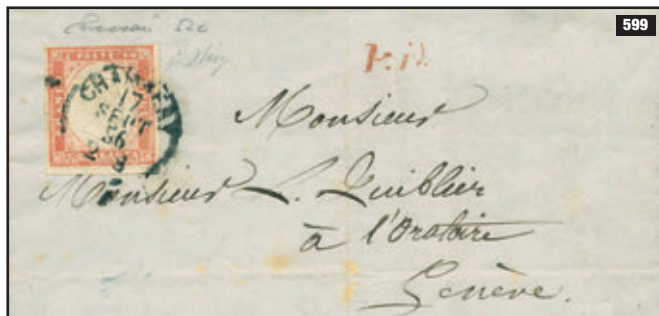 599
P.D.
CHAMBERY
17
SEPT
56
Monsieur
Monsieur L. Quiblier
à l'Oratoire
Genève.